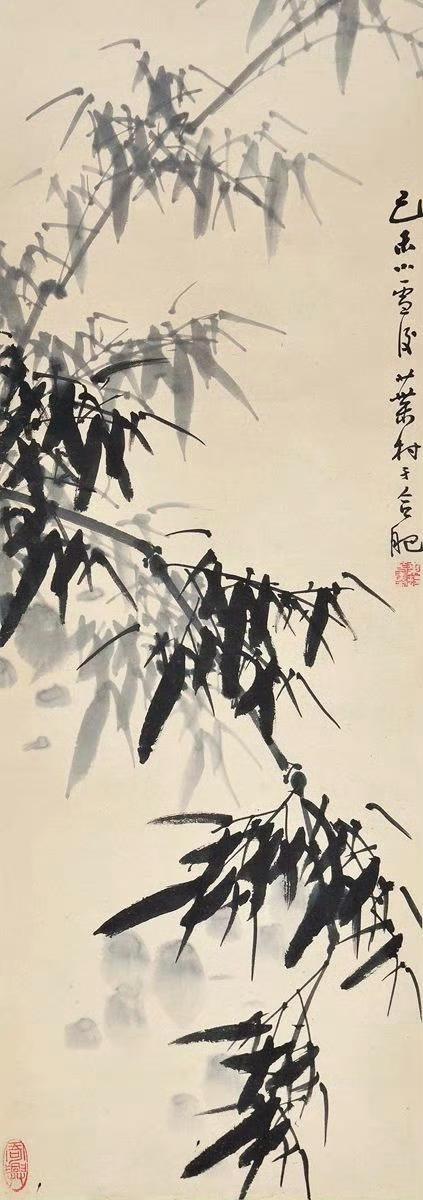 己未小雪後葉村于合肥